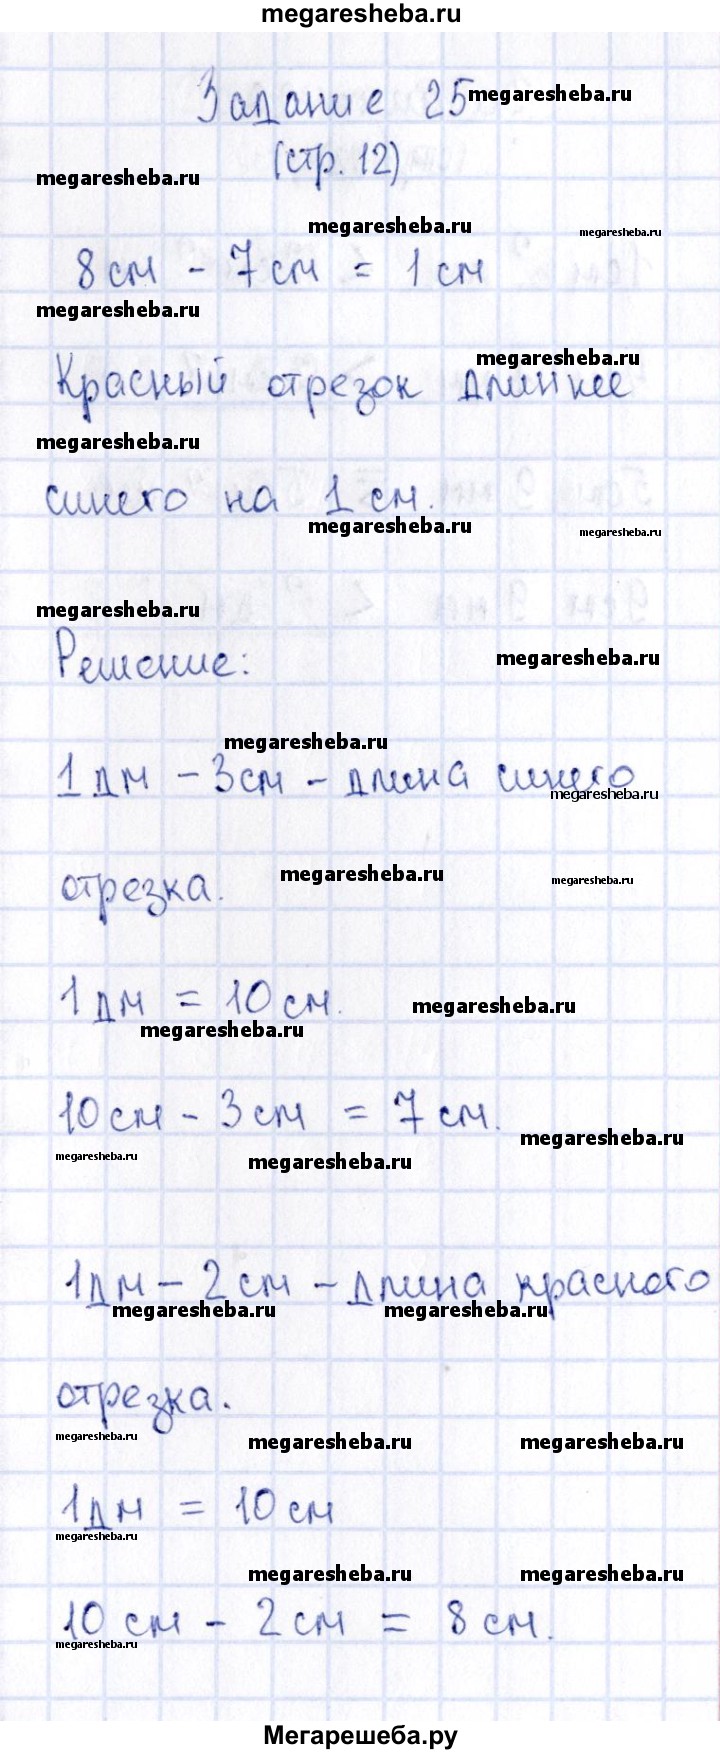 megaresheba.ru
Задание 25
megaresheba.ru
(стр. 12)
megaresheba.ru
megaresheba.ru
megaresheba.ru
8 см - 7 см = 1 см
megaresheba.ru
megaresheba.ru
Красный отрезок длиннее
megaresheba.ru
синего на 1 см.
megaresheba.ru
megaresheba.ru
megaresheba.ru
Решение:
megaresheba.ru
megaresheba.ru
1 дм - 3 см - длина синего
megaresheba.ru
отрезка.
megaresheba.ru
megaresheba.ru
1 дм = 10 см.
megaresheba.ru
megaresheba.ru
10 см - 3 см = 7 см.
megaresheba.ru
megaresheba.ru
megaresheba.ru
1 дм - 2 см - длина красного
megaresheba.ru
megaresheba.ru
отрезка.
megaresheba.ru
megaresheba.ru
megaresheba.ru
1 дм = 10 см
megaresheba.ru
megaresheba.ru
megaresheba.ru
10 см - 2 см = 8 см.
megaresheba.ru
Мегарешеба.ру